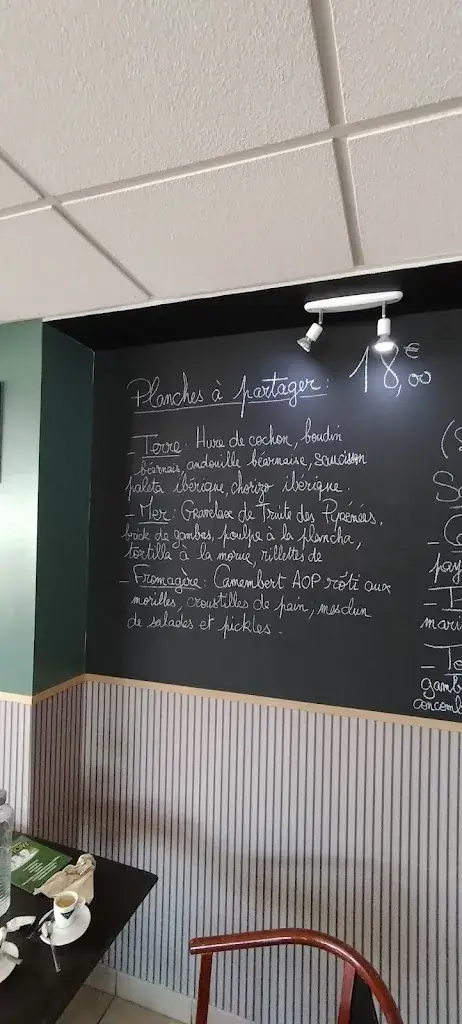 Planches à partager : 18,00 €
- Terre : Hure de cochon, boudin
béarnais, andouille béarnaise, saucisson
paleta ibérique, chorizo ibérique.
- Mer : Gravelaxe de Truite des Pyrénées,
brick de gambas, poulpe à la plancha,
tortilla à la morue, rillettes de
- Fromagère : Camembert AOP rôti aux
morilles, croustilles de pain, mesclun
de salades et pickles.
pay
mari
gamb
concomb